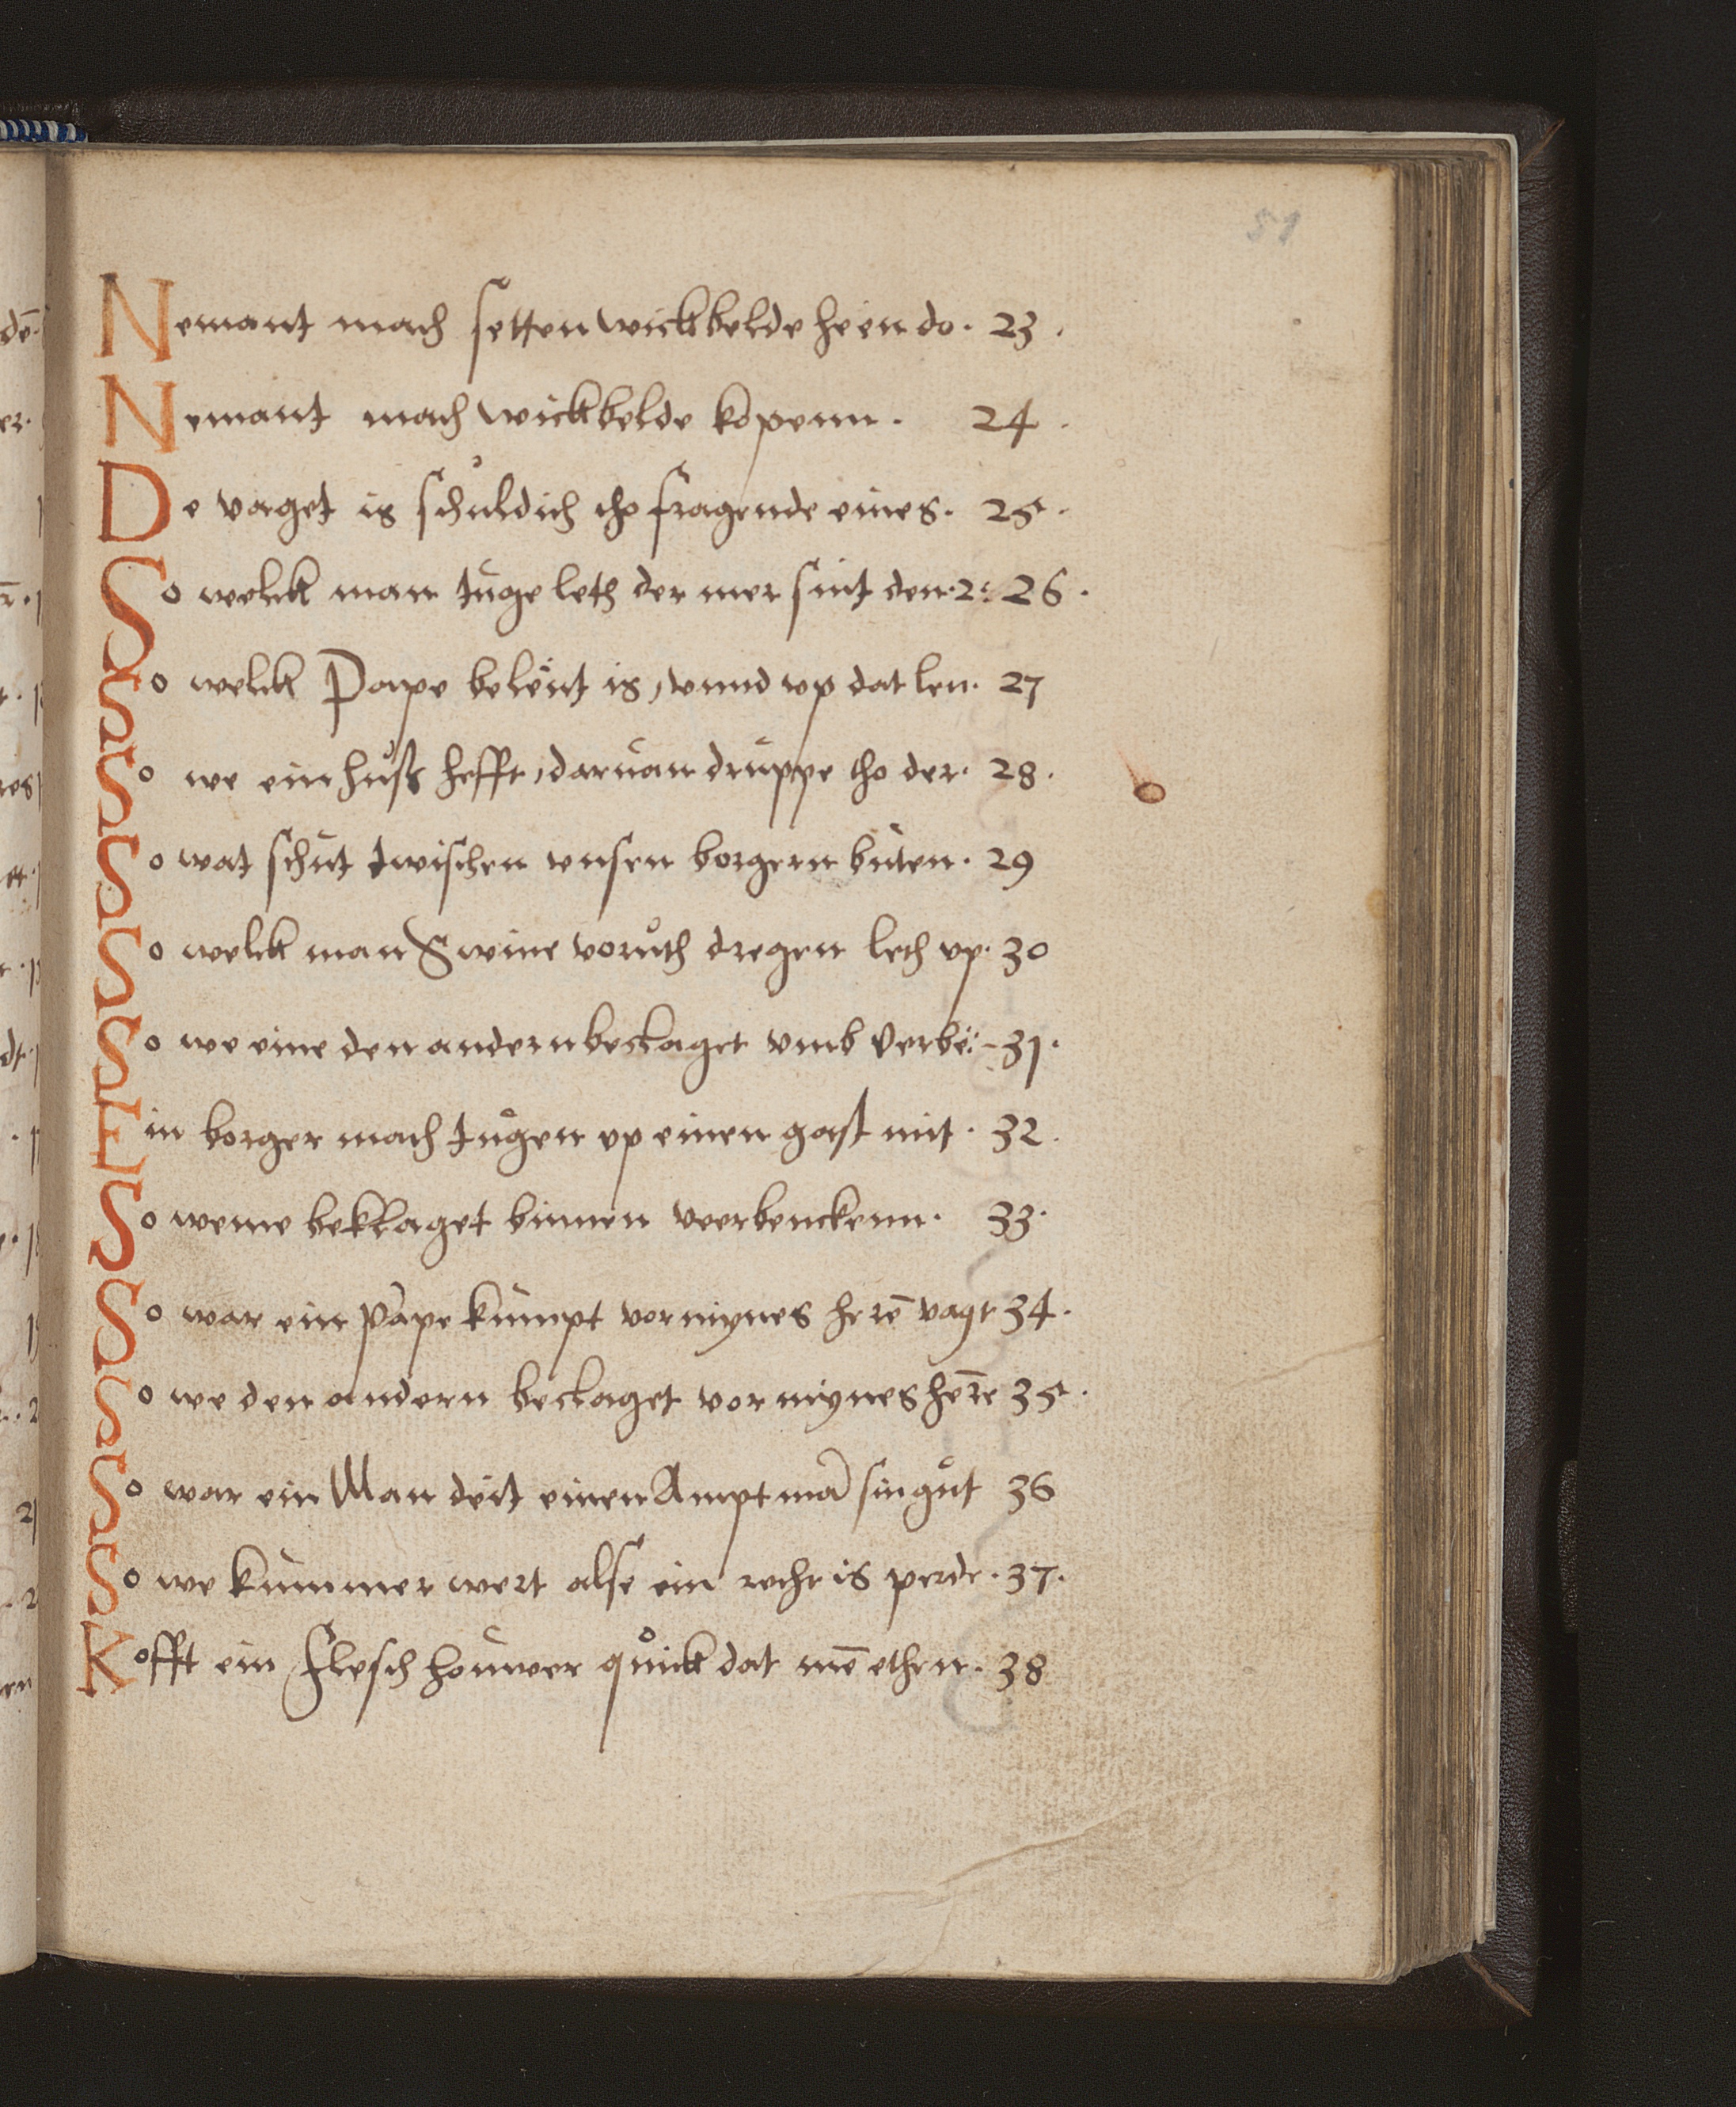 51
Nemant mach setten wickbelde heen do. 23.
Nemant mach wickbelde kopenn. 24.
De vaget is schůldich tho fragende eines. 25.
So welck man tuge leth der mer sint den.2: 26.
So welck Pape belent is, vnnd vp dat len. 27
So we ein huß hefft, daruan druppe tho der. 28.
So wat schut twischen vnsen borgern buten. 29
So welck man Swine vorůth dregen leth vp. 30
So we eine den andern beclaget vmb verbe: 31.
Ein borger mach tůgen vp einen gast mit. 32.
So weme beklaget binnen veerbenckenn. 33.
So war ein pape kumpt vor mynes herē vagt 34.
So we den andern beclaget vor mynes her̄e 35.
So war ein Man deit einen Amptmā sin gůt 36
So we kummer wert alse ein recht is perde. 37.
Kofft ein Flesch houwer qůick dat mē ethen. 38